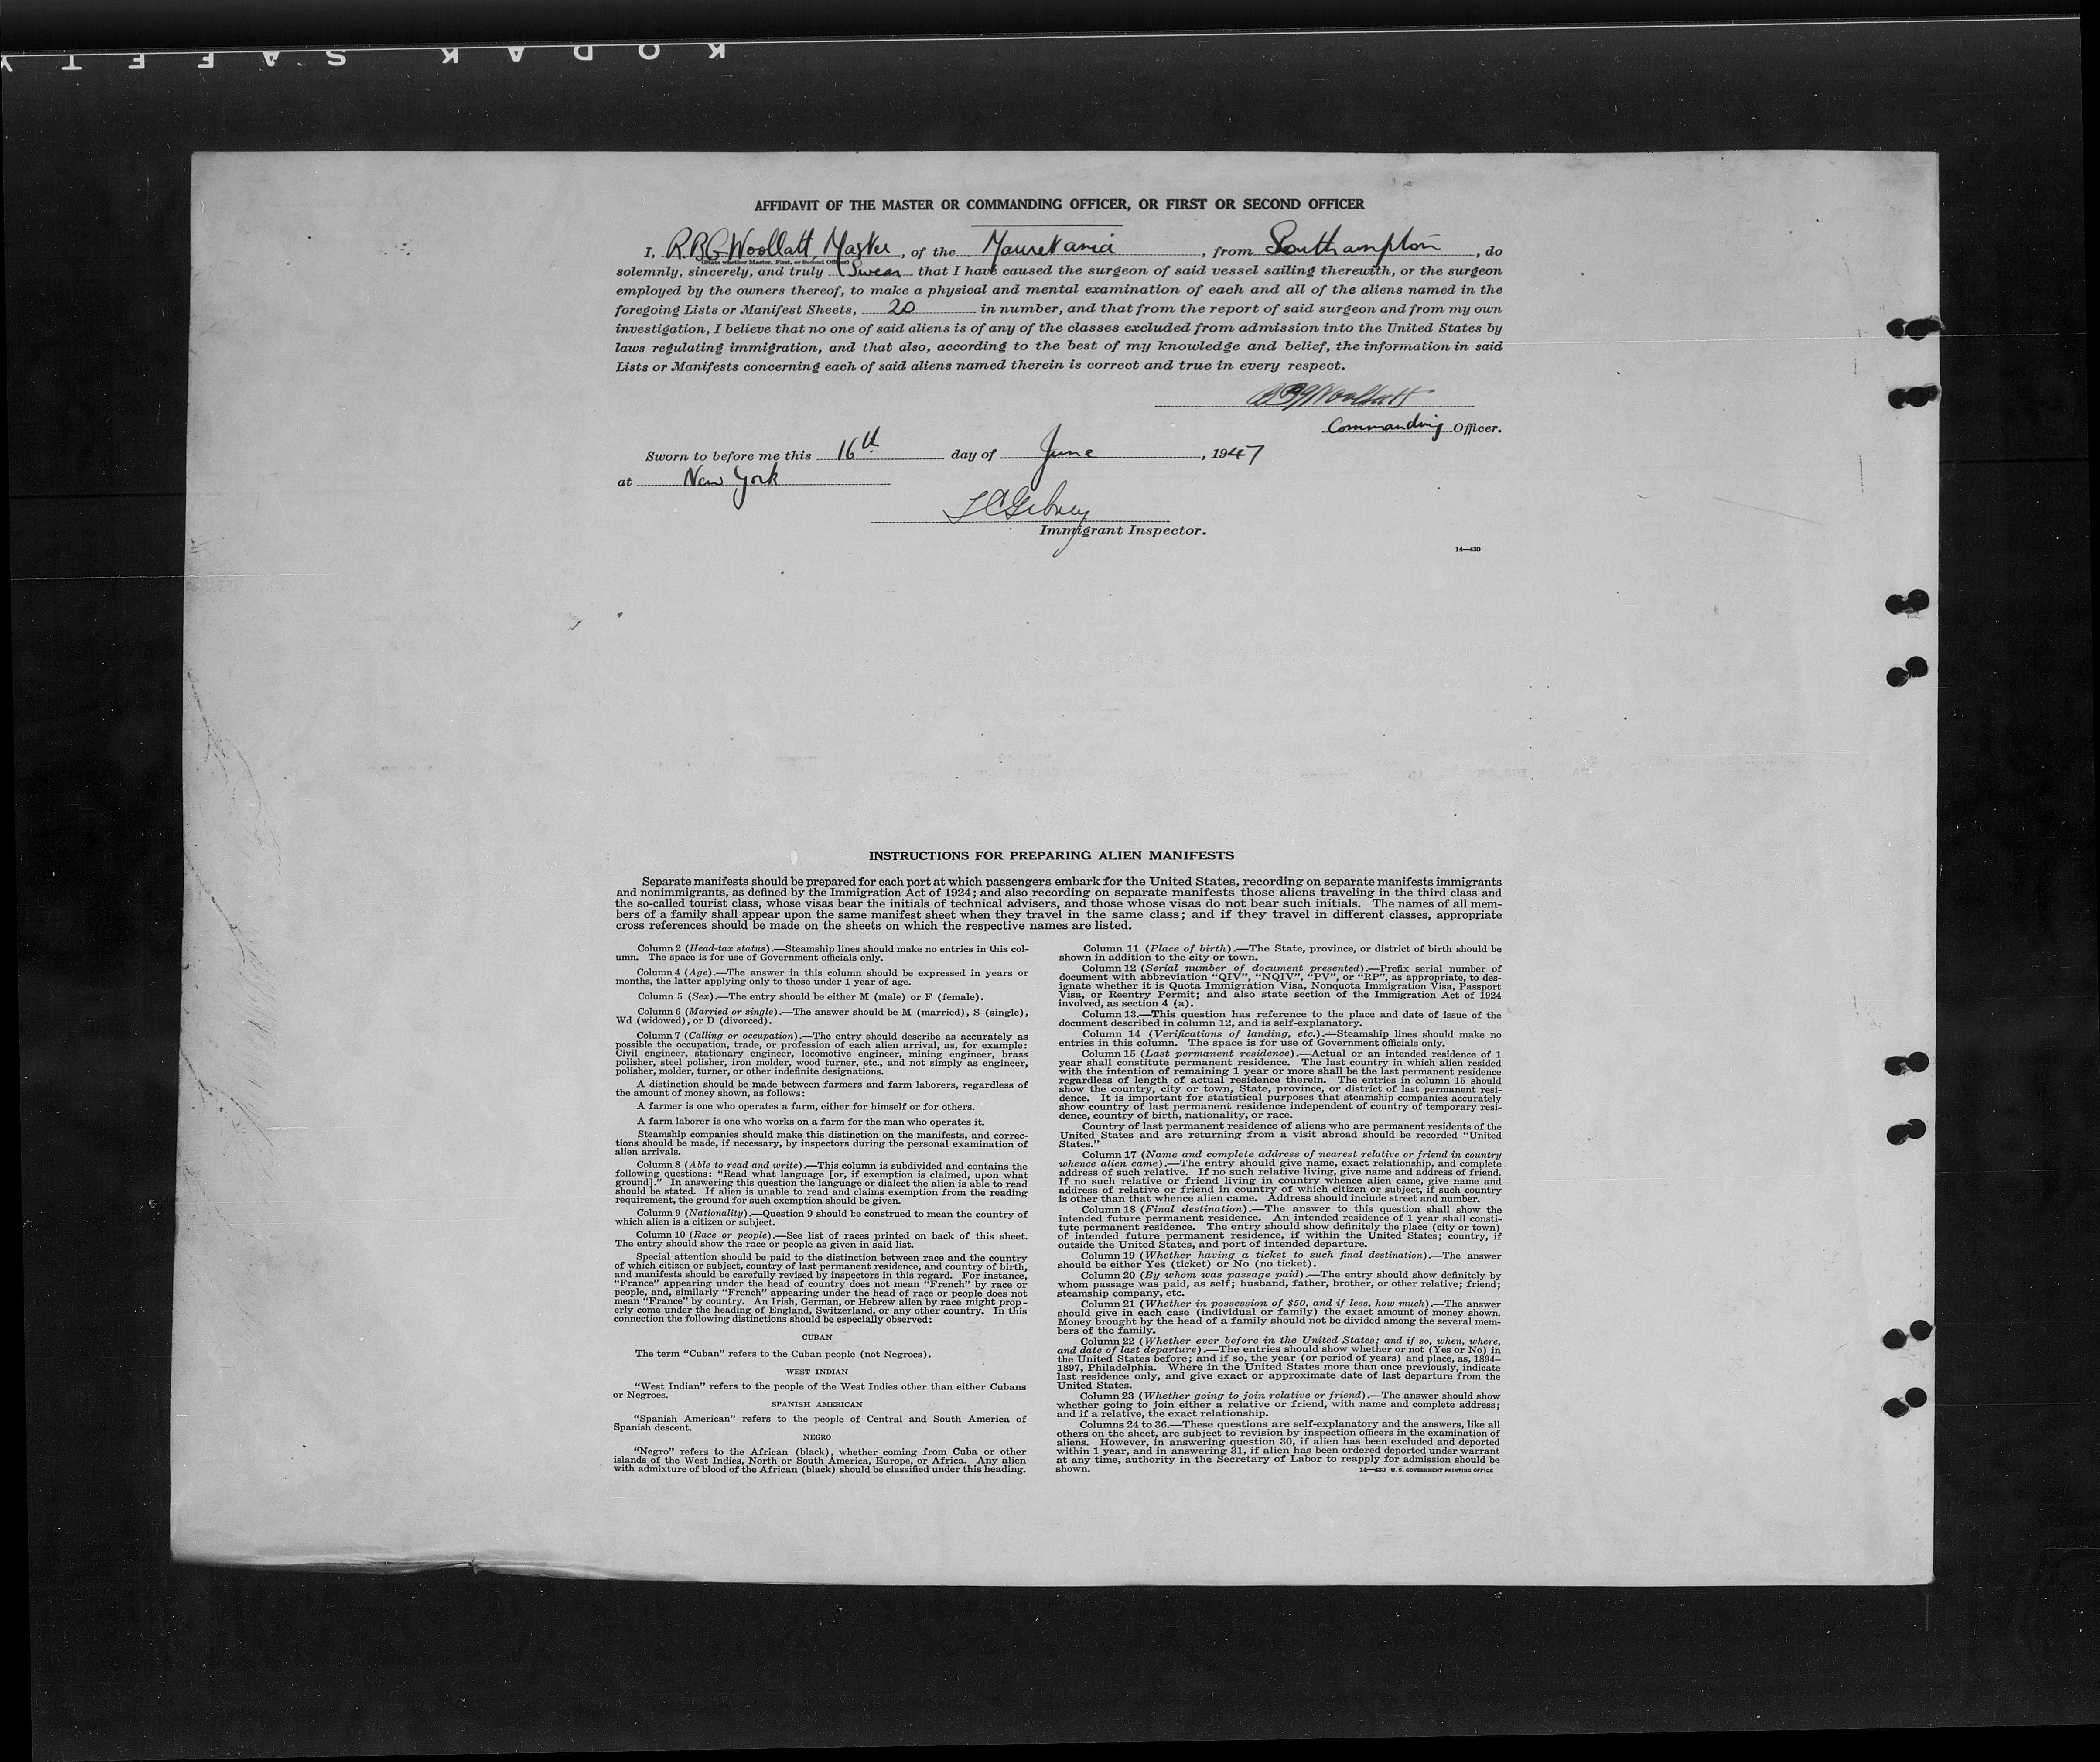 KODAK SAFETY
AFFIDAVIT OF THE MASTER OR COMMANDING OFFICER, OR FIRST OR SECOND OFFICER
I, R.B.G. Woollatt, Master, of the Mauretania, from Southampton, do
(State whether Master, First, or Second Officer)
solemnly, sincerely, and truly Swear that I have caused the surgeon of said vessel sailing therewith, or the surgeon
employed by the owners thereof, to make a physical and mental examination of each and all of the aliens named in the
foregoing Lists or Manifest Sheets, 20 in number, and that from the report of said surgeon and from my own
investigation, I believe that no one of said aliens is of any of the classes excluded from admission into the United States by
laws regulating immigration, and that also, according to the best of my knowledge and belief, the information in said
Lists or Manifests concerning each of said aliens named therein is correct and true in every respect.
RBG Woollatt
Commanding Officer.
Sworn to before me this 16th day of June, 1947
at New York
Immigrant Inspector.
14—430
INSTRUCTIONS FOR PREPARING ALIEN MANIFESTS
Separate manifests should be prepared for each port at which passengers embark for the United States, recording on separate manifests immigrants
and nonimmigrants, as defined by the Immigration Act of 1924; and also recording on separate manifests those aliens traveling in the third class and
the so-called tourist class, whose visas bear the initials of technical advisers, and those whose visas do not bear such initials. The names of all mem-
bers of a family shall appear upon the same manifest sheet when they travel in the same class; and if they travel in different classes, appropriate
cross references should be made on the sheets on which the respective names are listed.
Column 2 (Head-tax status).—Steamship lines should make no entries in this col-
umn. The space is for use of Government officials only.
Column 4 (Age).—The answer in this column should be expressed in years or
months, the latter applying only to those under 1 year of age.
Column 5 (Sex).—The entry should be either M (male) or F (female).
Column 6 (Married or single).—The answer should be M (married), S (single),
Wd (widowed), or D (divorced).
Column 7 (Calling or occupation).—The entry should describe as accurately as
possible the occupation, trade, or profession of each alien arrival, as, for example:
Civil engineer, stationary engineer, locomotive engineer, mining engineer, brass
polisher, steel polisher, iron molder, wood turner, etc., and not simply as engineer,
polisher, molder, turner, or other indefinite designations.
A distinction should be made between farmers and farm laborers, regardless of
the amount of money shown, as follows:
A farmer is one who operates a farm, either for himself or for others.
A farm laborer is one who works on a farm for the man who operates it.
Steamship companies should make this distinction on the manifests, and correc-
tions should be made, if necessary, by inspectors during the personal examination of
alien arrivals.
Column 8 (Able to read and write).—This column is subdivided and contains the
following questions: "Read what language [or, if exemption is claimed, upon what
ground]." In answering this question the language or dialect the alien is able to read
should be stated. If alien is unable to read and claims exemption from the reading
requirement, the ground for such exemption should be given.
Column 9 (Nationality).—Question 9 should be construed to mean the country of
which alien is a citizen or subject.
Column 10 (Race or people).—See list of races printed on back of this sheet.
The entry should show the race or people as given in said list.
Special attention should be paid to the distinction between race and the country
of which citizen or subject, country of last permanent residence, and country of birth,
and manifests should be carefully revised by inspectors in this regard. For instance,
"France" appearing under the head of country does not mean "French" by race or
people, and, similarly "French" appearing under the head of race or people does not
mean "France" by country. An Irish, German, or Hebrew alien by race might prop-
erly come under the heading of England, Switzerland, or any other country. In this
connection the following distinctions should be especially observed:
CUBAN
The term "Cuban" refers to the Cuban people (not Negroes).
WEST INDIAN
"West Indian" refers to the people of the West Indies other than either Cubans
or Negroes.
SPANISH AMERICAN
"Spanish American" refers to the people of Central and South America of
Spanish descent.
NEGRO
"Negro" refers to the African (black), whether coming from Cuba or other
islands of the West Indies, North or South America, Europe, or Africa. Any alien
with admixture of blood of the African (black) should be classified under this heading.
Column 11 (Place of birth).—The State, province, or district of birth should be
shown in addition to the city or town.
Column 12 (Serial number of document presented).—Prefix serial number of
document with abbreviation "QIV", "NQIV", "PV", or "RP", as appropriate, to des-
ignate whether it is Quota Immigration Visa, Nonquota Immigration Visa, Passport
Visa, or Reentry Permit; and also state section of the Immigration Act of 1924
involved, as section 4 (a).
Column 13.—This question has reference to the place and date of issue of the
document described in column 12, and is self-explanatory.
Column 14 (Verifications of landing, etc.).—Steamship lines should make no
entries in this column. The space is for use of Government officials only.
Column 15 (Last permanent residence).—Actual or an intended residence of 1
year shall constitute permanent residence. The last country in which alien resided
with the intention of remaining 1 year or more shall be the last permanent residence
regardless of length of actual residence therein. The entries in column 15 should
show the country, city or town, State, province, or district of last permanent resi-
dence. It is important for statistical purposes that steamship companies accurately
show country of last permanent residence independent of country of temporary resi-
dence, country of birth, nationality, or race.
Country of last permanent residence of aliens who are permanent residents of the
United States and are returning from a visit abroad should be recorded "United
States."
Column 17 (Name and complete address of nearest relative or friend in country
whence alien came).—The entry should give name, exact relationship, and complete
address of such relative. If no such relative living, give name and address of friend.
If no such relative or friend living in country whence alien came, give name and
address of relative or friend in country of which citizen or subject, if such country
is other than that whence alien came. Address should include street and number.
Column 18 (Final destination).—The answer to this question shall show the
intended future permanent residence. An intended residence of 1 year shall consti-
tute permanent residence. The entry should show definitely the place (city or town)
of intended future permanent residence, if within the United States; country, if
outside the United States, and port of intended departure.
Column 19 (Whether having a ticket to such final destination).—The answer
should be either Yes (ticket) or No (no ticket).
Column 20 (By whom was passage paid).—The entry should show definitely by
whom passage was paid, as self; husband, father, brother, or other relative; friend;
steamship company, etc.
Column 21 (Whether in possession of $50, and if less, how much).—The answer
should give in each case (individual or family) the exact amount of money shown.
Money brought by the head of a family should not be divided among the several mem-
bers of the family.
Column 22 (Whether ever before in the United States; and if so, when, where,
and date of last departure).—The entries should show whether or not (Yes or No) in
the United States before; and if so, the year (or period of years) and place, as, 1894–
1897, Philadelphia. Where in the United States more than once previously, indicate
last residence only, and give exact or approximate date of last departure from the
United States.
Column 23 (Whether going to join relative or friend).—The answer should show
whether going to join either a relative or friend, with name and complete address;
and if a relative, the exact relationship.
Columns 24 to 36.—These questions are self-explanatory and the answers, like all
others on the sheet, are subject to revision by inspection officers in the examination of
aliens. However, in answering question 30, if alien has been excluded and deported
within 1 year, and in answering 31, if alien has been ordered deported under warrant
at any time, authority in the Secretary of Labor to reapply for admission should be
shown.
14—430 U. S. GOVERNMENT PRINTING OFFICE